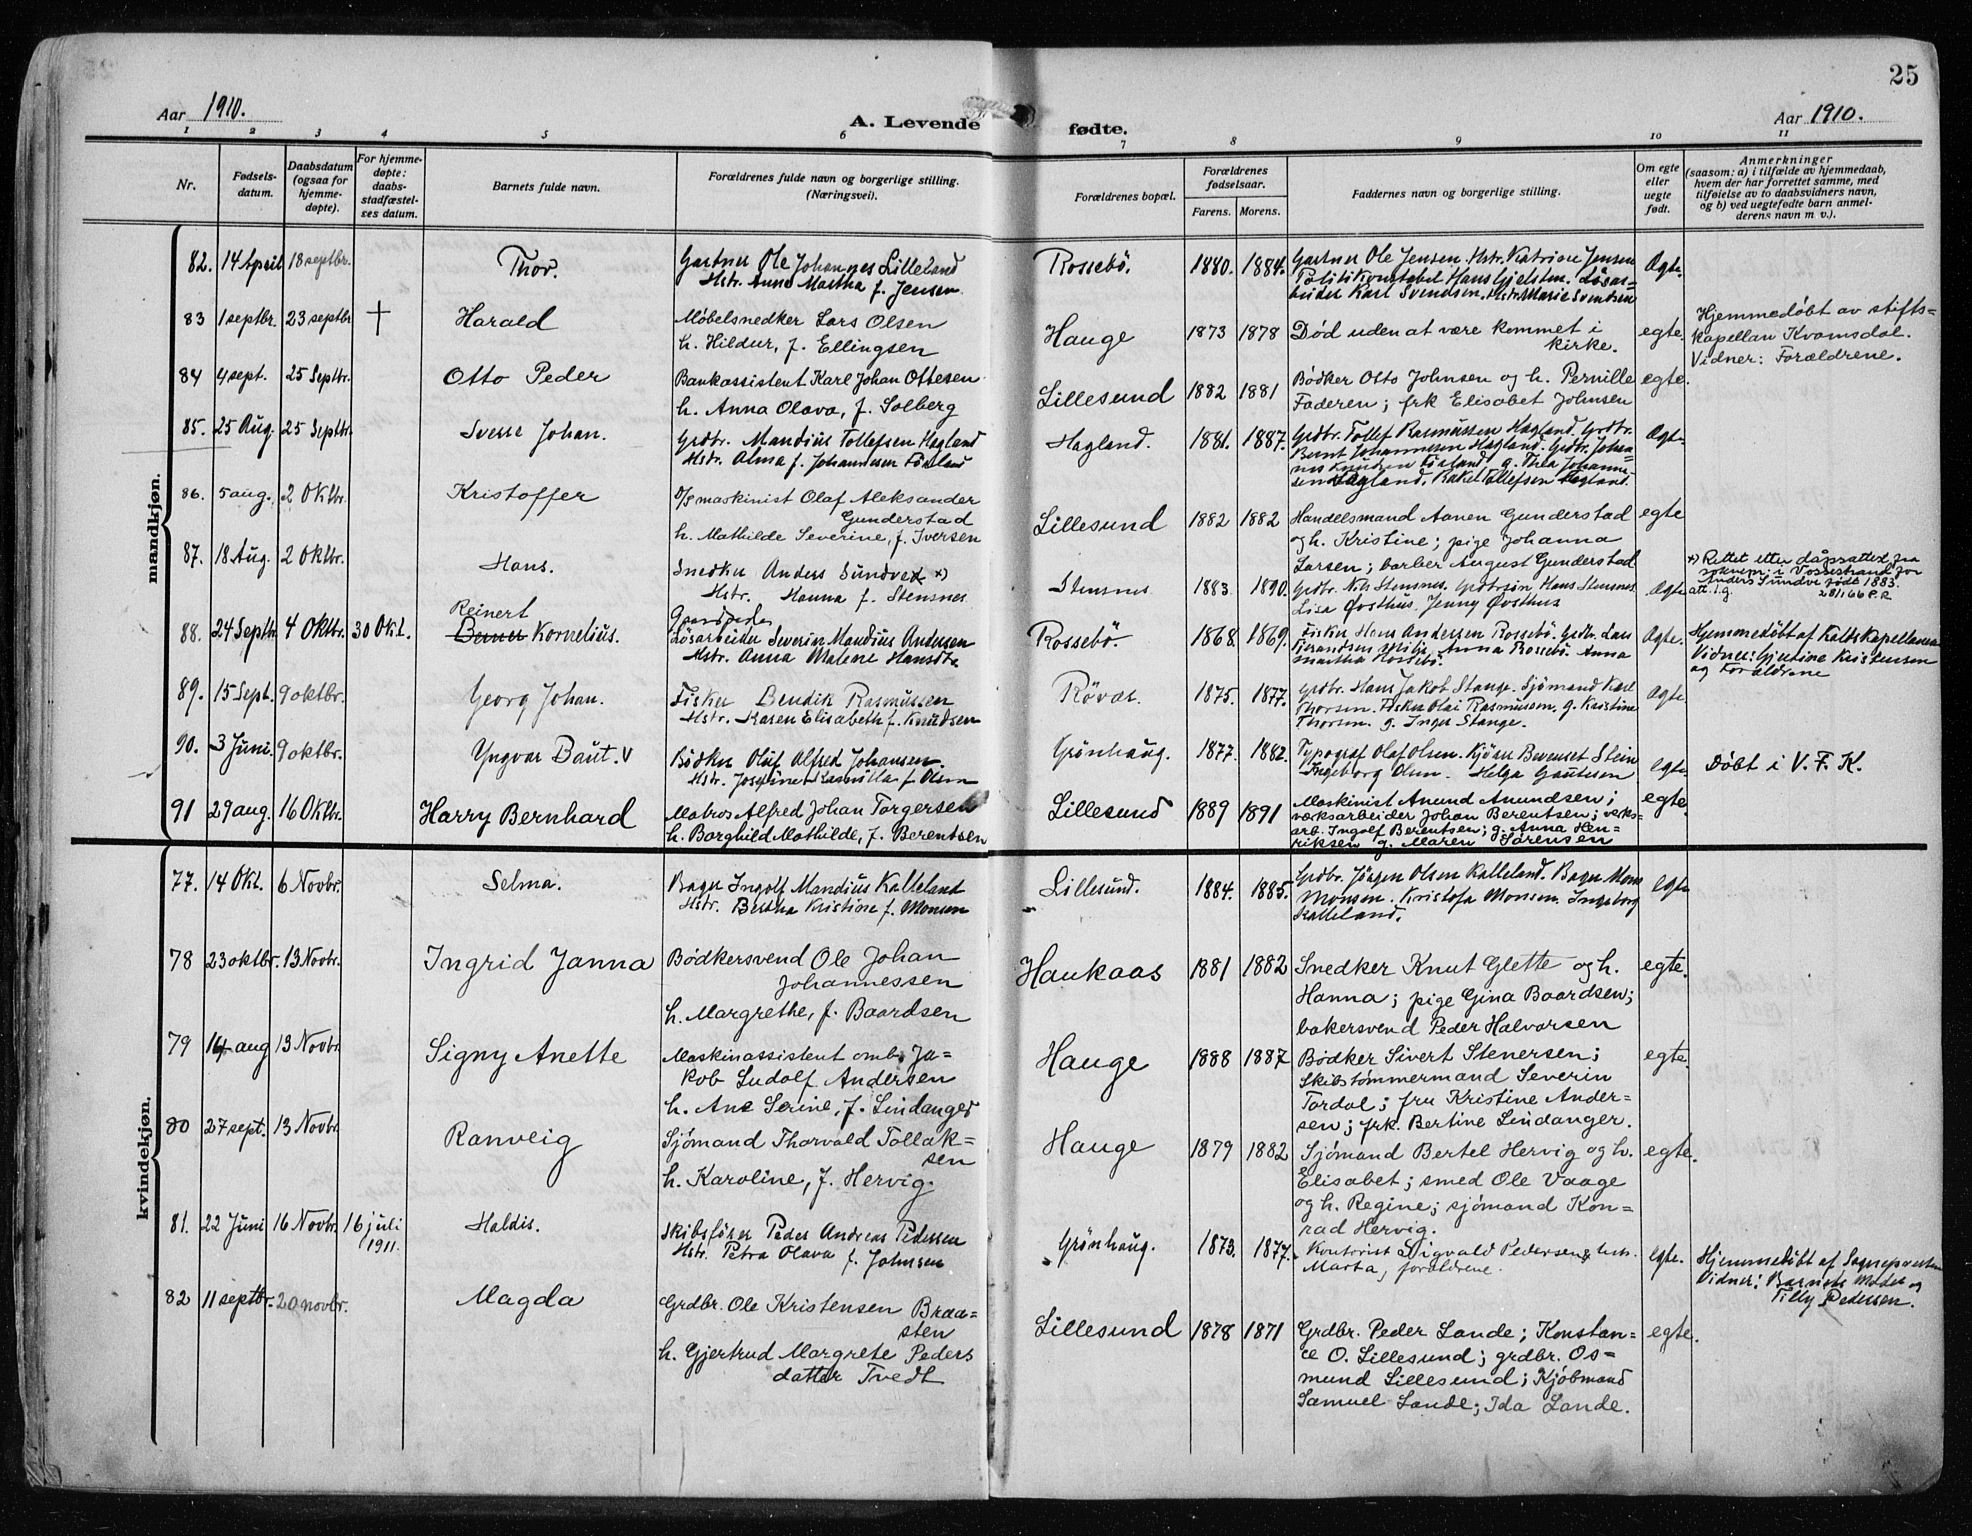 25
Aar 1910.
A. Levende fødte.
Aar 1910.
1 2 3 4 5 6 7 8 9 10 11
Nr.
Fødsels-
datum.
Daabsdatum
(ogsaa for
hjemme-
døpte).
For hjemme-
døpte:
daabs-
stadfæstel-
ses datum.
Barnets fulde navn.
Forældrenes fulde navn og borgerlige stilling.
(Næringsvei).
Forældrenes bopæl.
Forældrenes
fødselsaar.
Farens. Morens.
Faddernes navn og borgerlige stilling.
Om egte
eller
uegte
født.
Anmerkninger
(saasom: a) i tilfælde av hjemmedaab,
hvem der har forrettet samme, med
tilføielse av to daabsvidners navn,
og b) ved uegtefødte barn anmel-
derens navn m v.).
mandkjøn.
82. 14 April 18 septbr. Thor.
Gartner Ole Johannes Lilleland
Hstr. Anna Martha f. Jensen
Rossebö. 1880. 1884.
Gartner Ole Jensen. Hstr. Katrine Jensen
Politikonstabel Hans Gjelsten. Løsar-
beider Karl Svendsen. Hstr. Marie Svendsen
Ægte.
83 1 septbr. 23 septbr † Harald
Møbelsnedker Lars Olsen
h. Hildur, f. Ellingsen
Hauge 1873 1878
Død uden at være kommet i
kirke.
egte.
Hjemmedøbt av stifts-
kapellan Kvamsdal.
Vidner: Forældrene.
84 4 sept. 25 Septbr. Otto Peder
Bankassistent Karl Johan Ottesen
h. Anna Olava, f. Solberg
Lillesund 1882 1881
Bødker Otto Johnsen og h. Pernille
Faderen; frk Elisabet Johnsen
egte.
85. 25 Aug. 25 Septbr. Sverre Johan.
Grdbr. Mandius Tollefsen Hagland
Hstr. Alma f. Johannessen
Hagland. 1881. 1887.
Grdbr. Tollef Rasmussen Hagland. Grdbr.
Bernt Johannessen Hagland. Grdbr. Johan-
nes Knudsen g. Thea Johanne-
sen Hagland. Rakel Tollefsen Hagland.
Ægte.
86. 5 aug. 2 Oktbr. Kristoffer
D/S maskinist Olaf Aleksander
Gunderstad
h. Mathilde Severine, f. Iversen
Lillesund 1882 1882
Handelsmand Aanen Gunderstad
og h. Kristine; pige Johanna
Larsen; barber August Gunderstad
egte
87. 18 Aug. 2 Oktbr. Hans.
Snedker Anders Sundved *)
Hstr. Hanna f. Stensnes
Stensnes 1883. 1890.
Grdbr. Nils Stensnes. Grdbrsøn Hans Stensnes
Lisa Øvsthus. Jenny Øvsthus
Ægte
*) Rettet etter dåpsattest fra
soknepr. i Vossestrand for
Anders Sundve født 1883.
att. l.g. 28/1.66 P.R
88. 24 Septb. 4 Oktbr. 30 Okt.
Reinert
Berner Kornelius.
Løsarbeider Severin Mandius Andersen
Hstr. Anna Malene Hansdtr.
Rossebö. 1868. 1869.
Fisker Hans Andersen Rossebö. Grdbr. Lars
Anna Rossebö. Anna
Martha Rossebö.
Ægte.
Hjemmedøbt af
Vidner: Gjertine Kristensen
og Forældrene
89. 15 Sept. 9 oktbr. Georg Johan.
Fisker Bendik Rasmussen
Hstr. Karen Elisabeth f. Knudsen
Røvær. 1875. 1877.
Grdbr. Hans Jakob Stange. Sjømand Karl
Thorsen. Fisker Olai Rasmussen. g. Kristine
Thorsen. g. Inger Stange.
Ægte
90. 3 Juni. 9 oktbr. Yngvar Baut. V
Bødker Oluf Alfred Johansen.
Hstr. Josefine f. Olsen
Grønhaug. 1877. 1882.
Typograf Olaf Olsen. Stein
Ingeborg Olsen. Helga Gautesen
egte.
Døbt i V. F. K.
91 29 aug. 16 Oktbr. Harry Bernhard
Matros Alfred Johan Torgersen
h. Borghild Mathilde, f. Berentsen
Lillesund 1889 1891
Maskinist Anund Anundsen;
verksarbeider Johan Berentsen; verks-
arb. Ingolf Berentsen; g. Anna Hen-
riksen g. Maren Sørensen
egte.
kvindekjøn.
77. 14 Okt. 6 Novbr. Selma.
Bager Ingolf Mandius Kalleland
Hstr. Bertha Kristine f. Monsen
Lillesund. 1884. 1885.
Grdbr. Jørgen Olsen Kalleland. Bager Mons
Monsen. Kristofa Monsen. Ingeborg
Kalleland.
egte
78 23 oktbr. 13 Novbr. Ingrid Janna
Bødkersvend Ole Johan
Johannessen
h. Margrethe, f. Baardsen
Haukaas 1881 1882
Snedker Knut Glette og h.
Hanna; pige Gina Baardsen;
bakersvend Peder Halvorsen
egte.
79 14 aug 13 Novbr. Signy Anette
Maskinassistent ombr Ja-
kob Ludolf Andersen
h. Ane Serine, f. Lindanger
Hauge 1888 1887
Bødker Sivert Stenersen;
skibstømmermand Severin
Tordal; fru Kristine Ander-
sen; frk. Bertine Lindanger.
egte.
80 27 sept. 13 Novbr. Ranveig
Sjømand Thorvald Tollak-
sen
h. Karoline, f. Hervig.
Hauge 1879 1882
Sjømand Bertel Hervig og h.
Elisabet; smed Ole Vaage
og h. Regine; sjømand Kon-
rad Hervig.
egte.
81. 22 Juni 16 Novbr. 16 juli
1911.
Haldis.
Skibsfører Peder Andreas Pedersen
Hstr. Petra Olava f. Johnsen
Grønhaug. 1873. 1877.
Kontorist Sigvald Pedersen & hstr.
Marta, forældrene.
egte.
Hjemmedöbt af Sognepresten
Vidner: Barnets Moder og
Tilly Pedersen.
82 11 septbr. 20 novbr. Magda
Grdbr. Ole Kristensen Braa-
sten
h. Gjertrud Margrete Peders
datter Tvedt
Lillesund 1878 1871
Grdbr. Peder Lande; Konstan-
ce O. Lillesund; grdbr. Os-
mund Lillesund; Kjøbmand
Samuel Lande; Ida Lande.
egte.